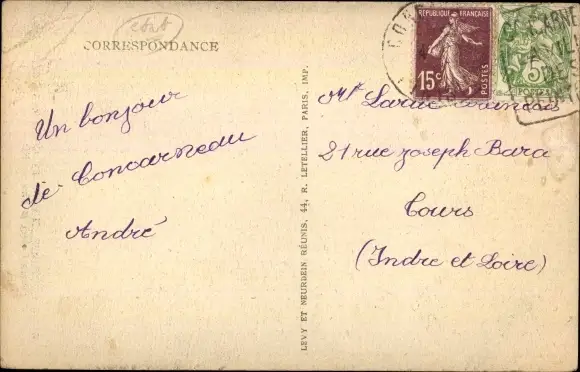 état
CORRESPONDANCE
Un bonjour
de Concarneau
André
LEVY ET NEURDEIN RÉUNIS, 44, R. LETELLIER, PARIS, IMP.
RÉPUBLIQUE FRANÇAISE
15c
POSTES
5c
POSTES
CONCARNE
VIL
DE
Mr Larue François
21 rue Joseph Bara
Tours
(Indre et Loire)